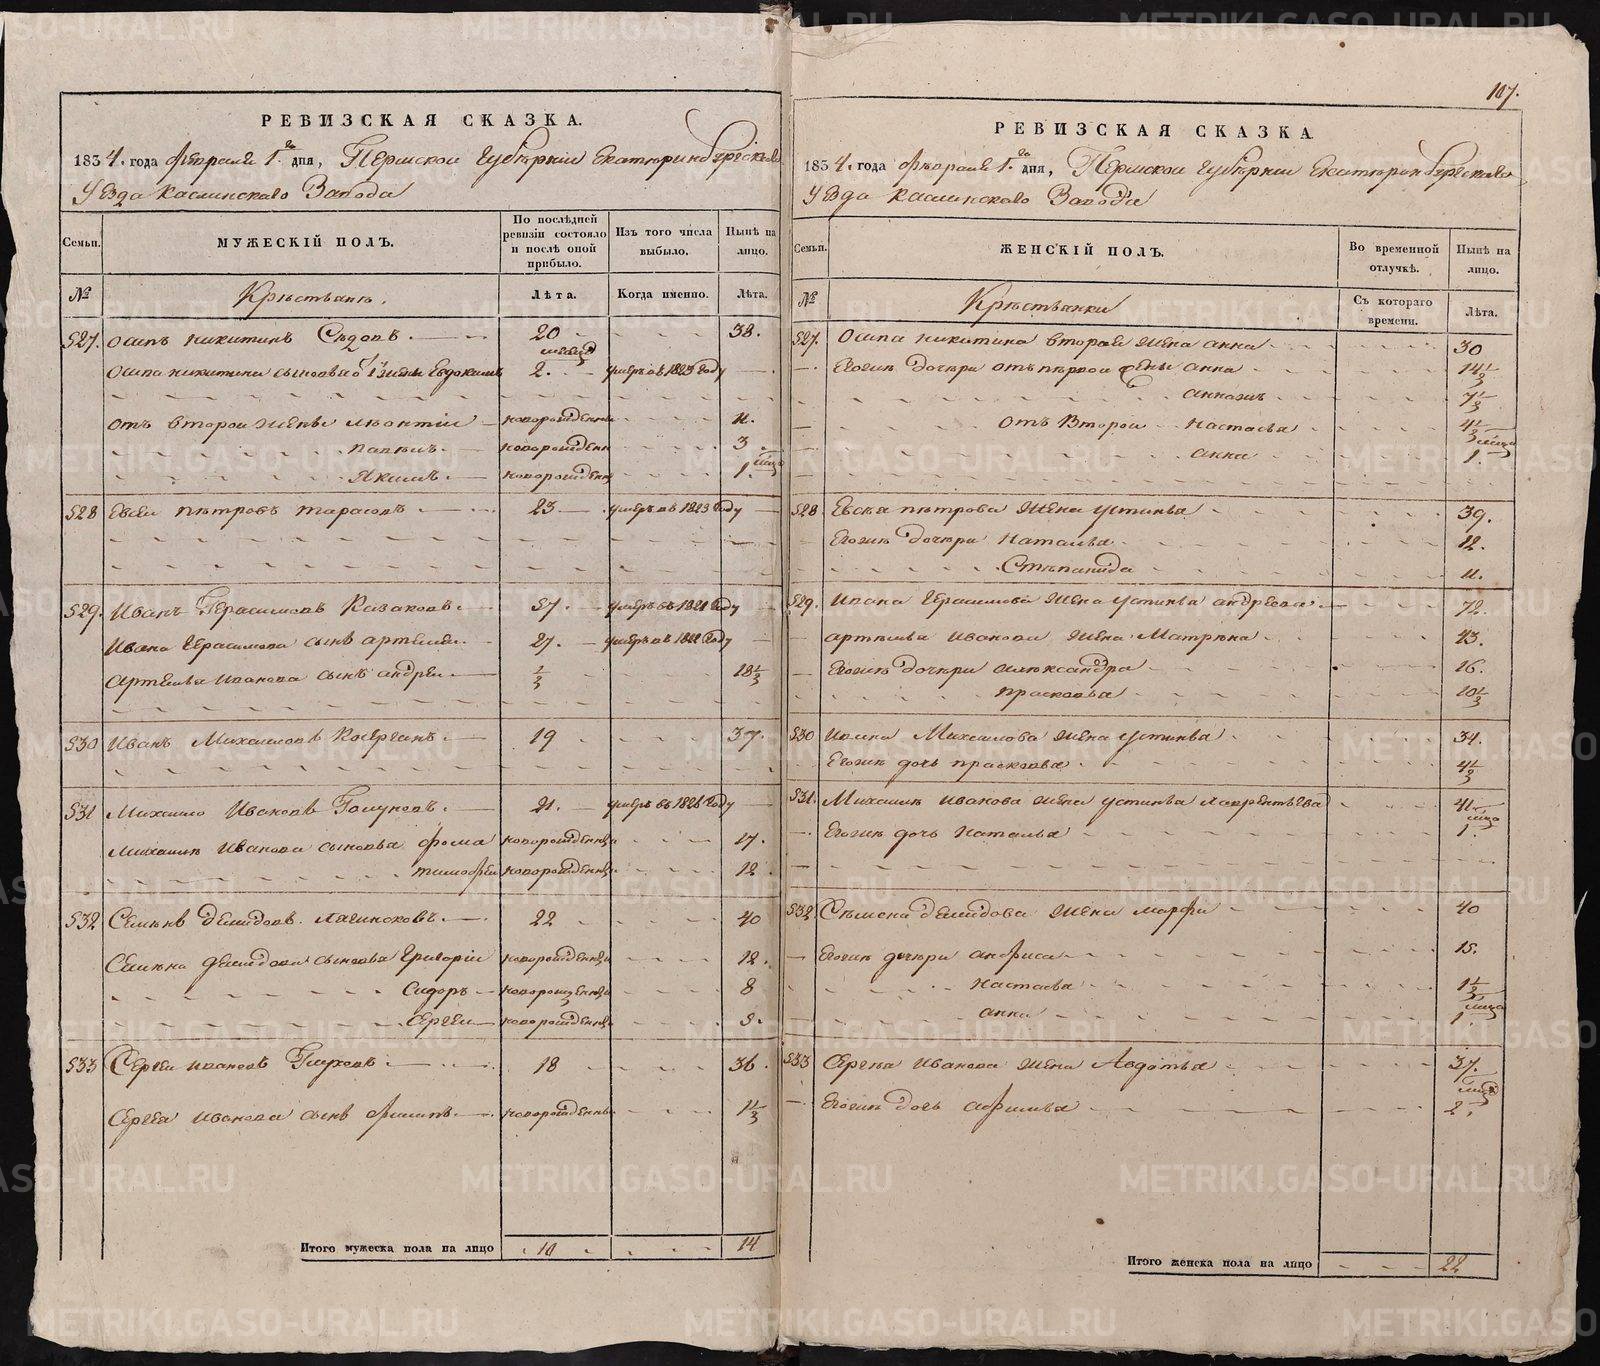 РЕВИЗСКАЯ СКАЗКА.
1834. года февраля 1го дня, Пермской губернии Екатеринбургскаго
уезда каслинскаго завода
Семьи.
МУЖЕСКІЙ ПОЛЪ.
По послѣдней ревизіи состояло и послѣ оной прибыло.
Изъ того числа выбыло.
Нынѣ на лицо.
№
Крѣстьянѣ.
Лѣта.
Когда именно.
Лѣта.
527. осипъ никитинъ Седовъ. 20 38.
осипа никитина сыновья от 1й жены Евдокимъ 2. месяца умеръ в 1823 году
отъ второй жены леонтий новорожденны 11.
новорожденны 3
Якимъ. новорожденны 1. месяц
528 Евсей петровъ тарасовъ 23 умеръ в 1823 году
529. Иванъ Герасимовъ Казаковъ. 57. умеръ въ 1821 году
Ивана Герасимова сынъ артемей. 27. умеръ в 1822 году
Артемья иванова сынъ андрей. 1/3 18 1/3
530 Иванъ Михайловъ 19 37.
531 Михайло Ивановъ Голуновъ. 21. умеръ въ 1826 году
Михайлы Иванова сыновья фома новорожденны 17.
тимофей новорожденны 12
532 Семенъ демидовъ 22 40
Семена демидова сыновья Григорий новорожденны 12.
Сидоръ новорожденны 8
Сергей новорожденны 5.
533 Сергей ивановъ Глуховъ. 18 36.
Сергея иванова сынъ филипъ. новорожденны 1 1/3
Итого мужеска пола на лицо 10 14
107.
РЕВИЗСКАЯ СКАЗКА
1834. года февраля 1го дня, Пермской губернии Екатеринбургскаго
уезда каслинскаго Завода
Семьи.
ЖЕНСКІЙ ПОЛЪ.
Во временной отлучкѣ.
Нынѣ на лицо.
№
Крѣстьянки
Съ котораго времени.
Лѣта.
527. Осипа никитина второй жена анна 30
Егожъ дочери отъ первой жены анна 14 1/2
7 1/2
отъ Второй настасья 4 1/2
анна 1. месяц
528 Евсея петрова жена устинья 39.
Егожъ дочери наталья 12.
Степанида 11.
529. Ивана Герасимова жена устинья андреева 72.
артемья иванова жена Матрена 43.
Егожъ дочери александра 16.
прасковья 10 1/2
530 Ивана Михайлова жена устинья 34.
Егожъ дочь прасковья 4 1/2
531. Михайлы иванова жена устинья лаврентьева 41.
Егожъ дочь наталья 1. месяц
532 Семена демидова жена марфа 40
Егожъ дочери анфиса 15.
настасья 1 1/2
анна 1. месяц
533 Сергея Иванова жена Авдотья 37.
Егожъ дочь афимья 2. месяц
Итого женска пола на лицо 22
METRIKI.GASO-URAL.RU